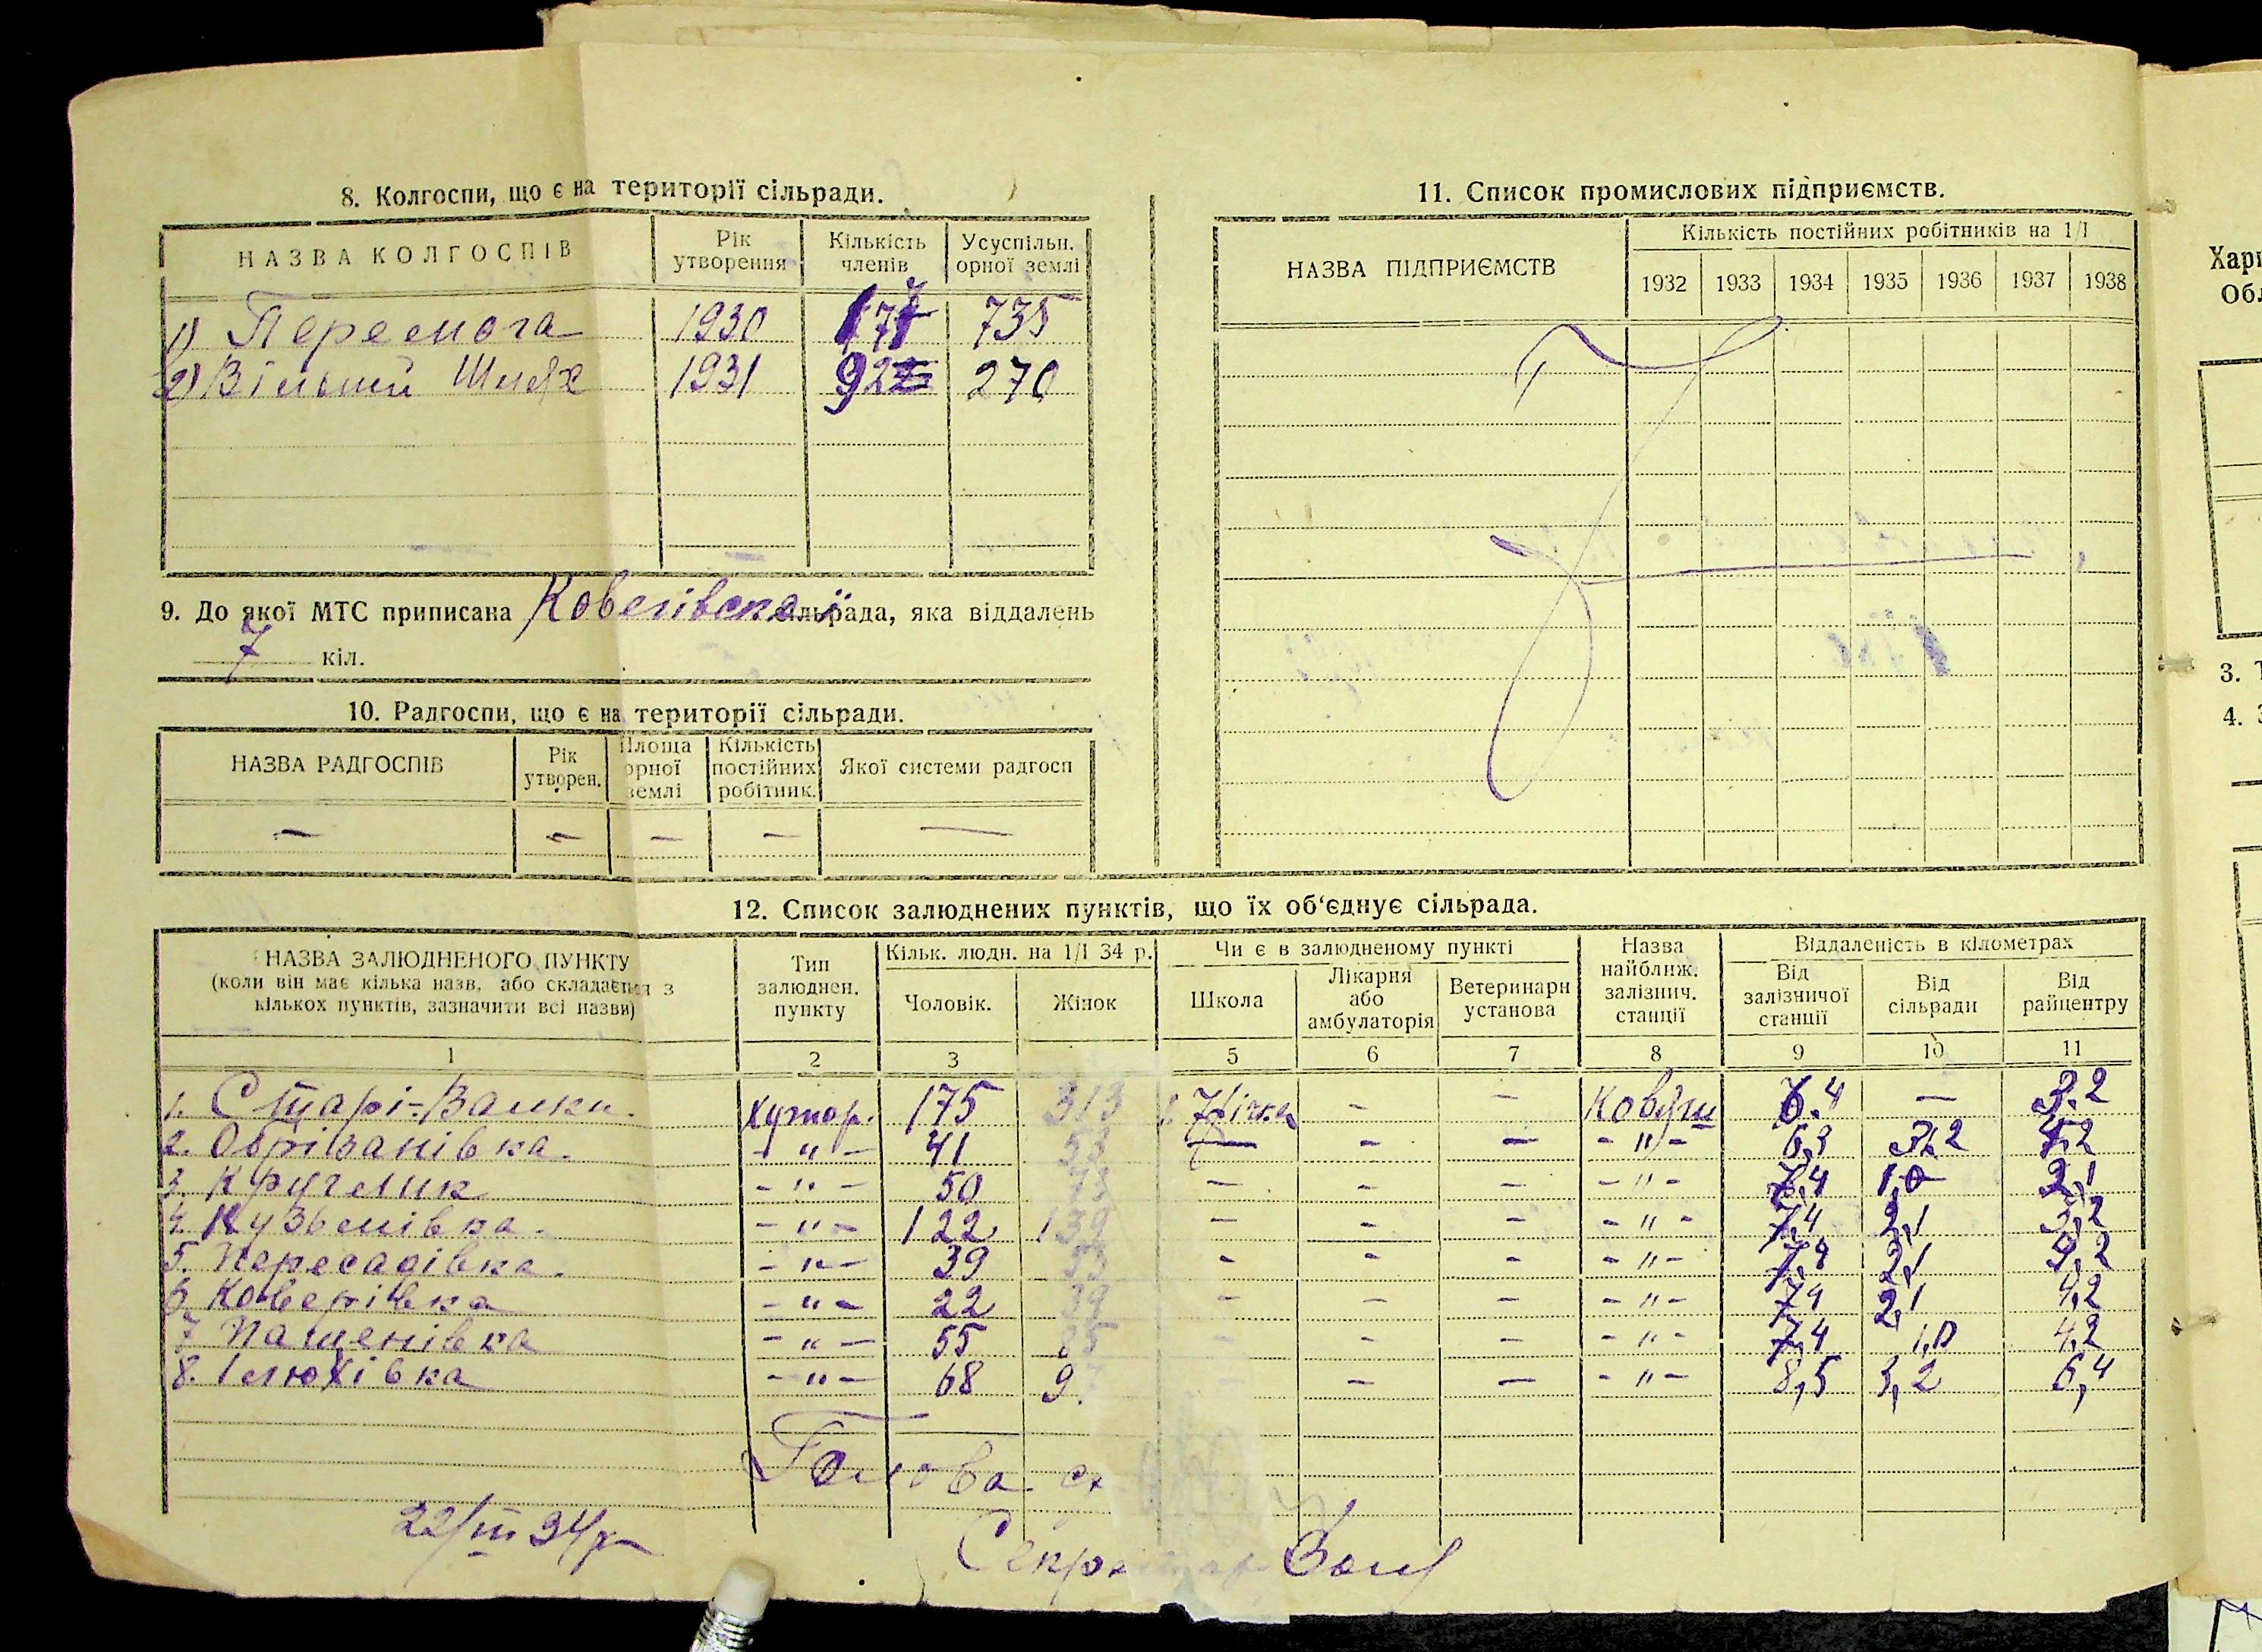 8. Колгоспи, що є на території сільради.
НАЗВА КОЛГОСПІВ
Рік утворення
Кількість членів
Усуспільн. орної землі
1) Перемога 1930 735
2) Вільний Шлях 1931 92 270
9. До якої МТС приписана сільрада, яка віддалень
7 кіл.
10. Радгоспи, що є на території сільради.
НАЗВА РАДГОСПІВ
Рік утворен.
Площа орної землі
Кількість постійних робітник.
Якої системи радгосп
— — — — —
11. Список промислових підприємств.
НАЗВА ПІДПРИЄМСТВ
Кількість постійних робітників на 1/I
1932 1933 1934 1935 1936 1937 1938
12. Список залюднених пунктів, що їх об‘єднує сільрада.
НАЗВА ЗАЛЮДНЕНОГО ПУНКТУ
(коли він має кілька назв, або складається з
кількох пунктів, зазначити всі назви)
Тип залюднен. пункту
Кільк. людн. на 1/I 34 р.
Чоловік. Жінок
Чи є в залюдненому пункті
Школа
Лікарня або амбулаторія
Ветеринарн установа
Назва найближ. залізнич. станції
Віддаленість в кілометрах
Від залізничої станції
Від сільради
Від райцентру
1 2 3 5 6 7 8 9 10 11
1. Старі-Валки. хутор. 175 313 — — Ковяги 6.4 — 3.2
2. -"- 41 53 — — — -"- 6,3
3. Кручелик -"- 50 — — — -"- 7,4 1,0 2,1
4. Кузьмівка. -"- 122 139 — — — -"- 7,4 2,1
5. Пересадівка. -"- 39 53 - - - -"- 2,1
6. Коверівка -"- 22 39 - — — -"- 2,1 4,2
7 Пащенівка -"- 55 85 - - — -"- 7,4 1,0 4,2
8. Ілюхівка -"- 68 9 — — -"- 8,5 3,2 6,4
Голова
22/III 34 р
Секретар
Хар
Об
3.
4.